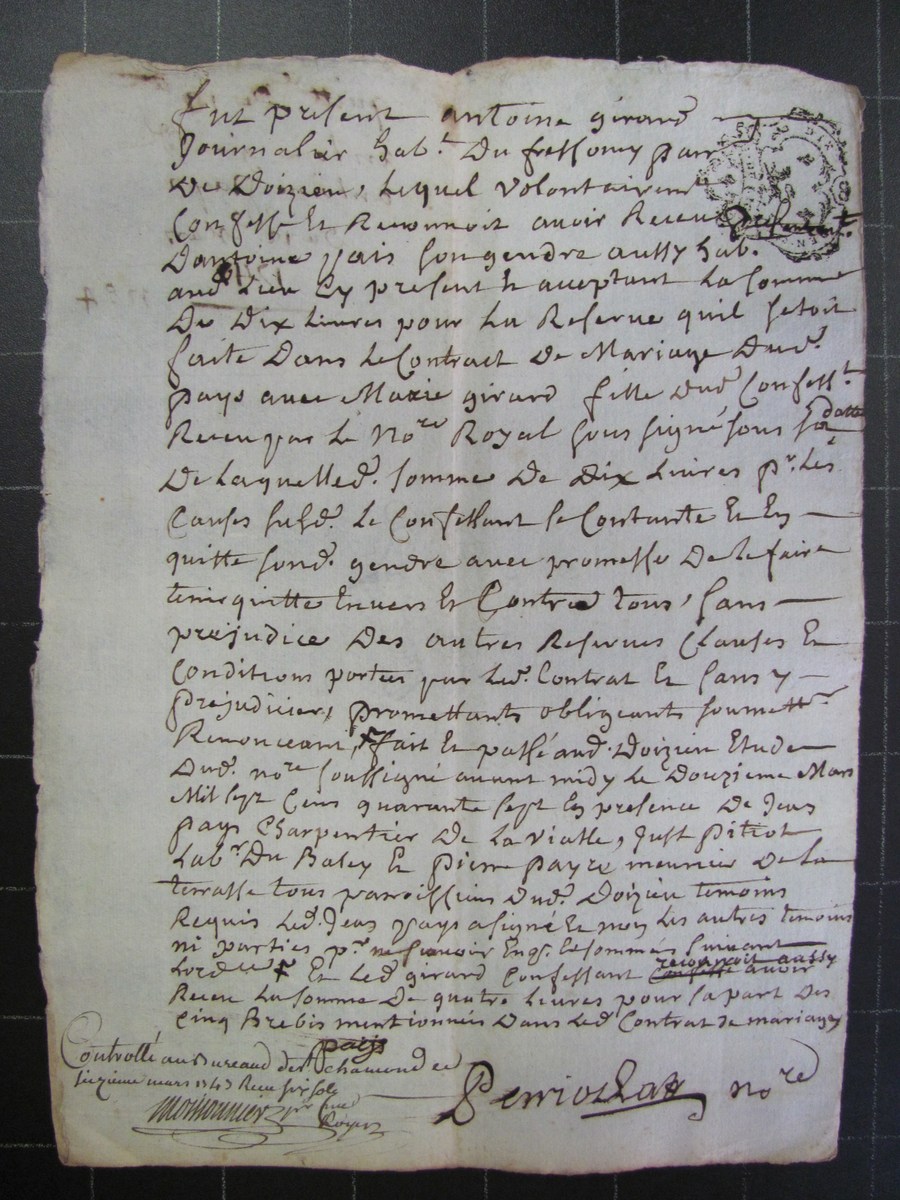 fut present antoine girard
Journalier hab.t Du fressony parr
De Doizieu, Lequel volontairemt
Confesse Et Reconnoit avoir Receu
Dantoine pais son gendre aussy hab.
aud. Lieu Cy present Et aceptant La somme
De Dix Livres pour La Reserve quil setoit
faite Dans Le Contract De Mariage Dud.
pays avec Marie girard fille dud Confess.t
Receu par Le Nore Royal soussigné sous sa datte
De Laquelled. somme De Dix Livres pr. Les
Causes susd. Le Confessant se Contante Et En
quitte sond. gendre avec promesse De Le faire
tenir quitte Envers Et Contre tous, sans
prejudice Des autres Reserves Clauses Et
Conditions portées par Led. Contrat Et sans y
prejudicier, promettants obligeants soumettr
Renonceant, fait Et passé aud. Doizieu Etude
Dud. nore soussigné avant midy Le Douzieme Mars
Mil sept Cens quarante sept En presence De Jean
pays Charpentier De La Vialle, Just pitiot
Labr. Du Basey Et pierre payre meunier De La
terrasse tous parroissiens Dud. Doizieu temoins
Requis Led. Jean pays a signé Et non Les autres temoins
ni parties pr. ne scavoir Enq. Et sommés suivant
Lordce Et Led. girard Confessant reconnoit aussy avoir
Receu La somme De quatre Livres pour sa part Des
Cinq Brebis mentionnés Dans Led. Contrat de mariage
pays
Controllé au Bureau de St chamond ce
treizieme mars 1747 Receu six sols
Perriochat nore